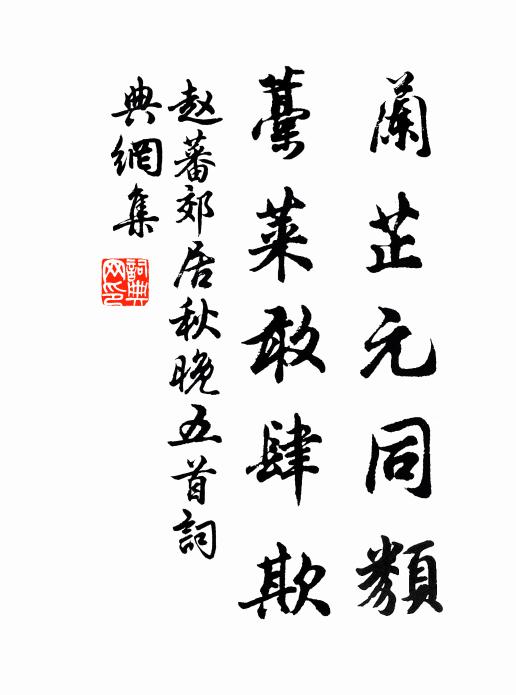 蘭芷元同類
藁萊敢肆欺
赵蕃郊居秋晚五首詞
典網集
詞典
网印